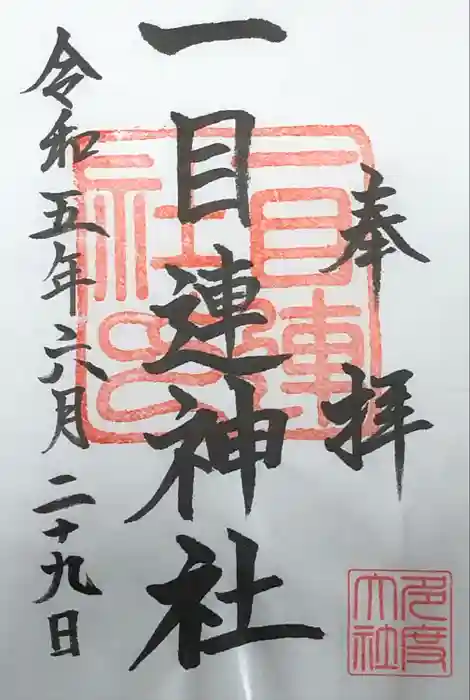 奉拝
一目連神社
令和五年六月二十九日
一目連社印
多度大社